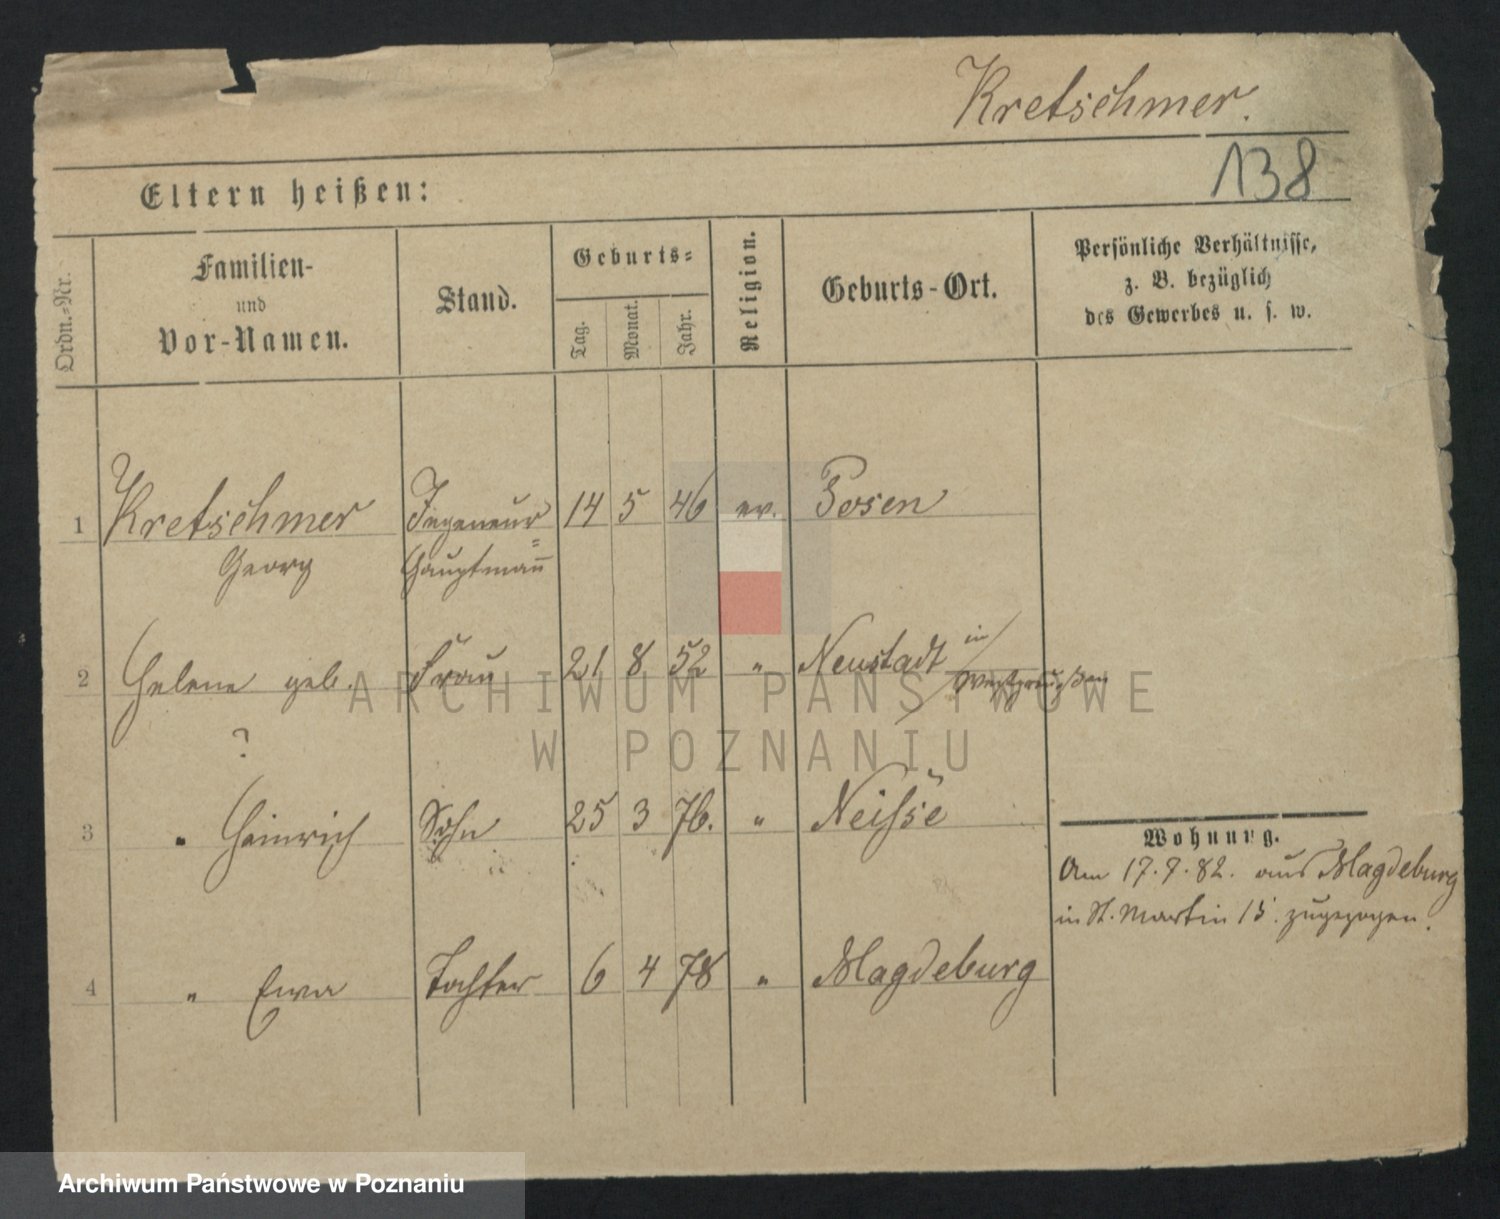 Kretschmer.
138
Eltern heißen:
Ordn.-Nr.
Familien-
und
Vor-Namen.
Stand.
Geburts-
Tag.
Monat.
Jahr.
Religion.
Geburts-Ort.
Persönliche Verhältnisse,
z. B. bezüglich
des Gewerbes u. s. w.
1 Kretschmer Ingeneur= 14 5 46 ev. Posen
Georg Hauptmann
2 Helene geb. Frau 21 8 52 " Neustadt in
Westpreußen
?
3 " Heinrich Sohn 25 3 76. " Neisse
Wohnung.
Am 17.9.82. aus Magdeburg
in St. Martin 15. zugezogen.
4 " Ewa Tochter 6 4 78 " Magdeburg
ARCHIWUM PAŃSTWOWE
W POZNANIU
Archiwum Państwowe w Poznaniu